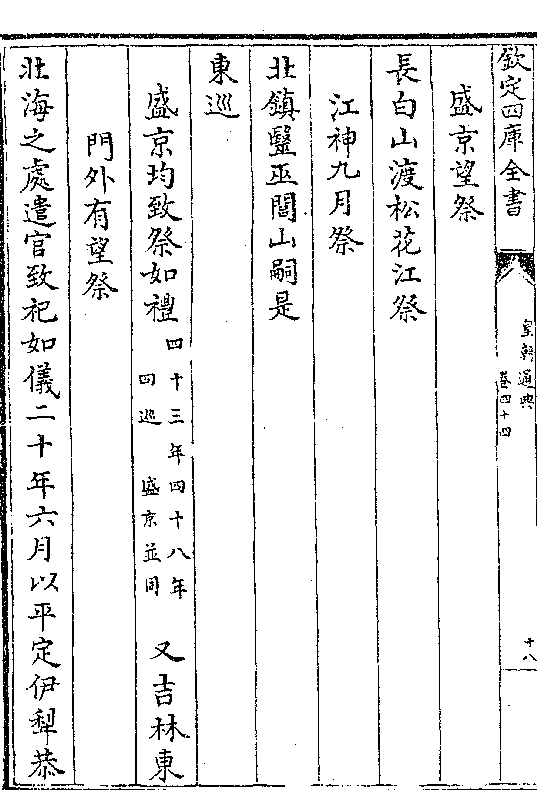 欽定四庫全書
皇朝通典
卷四十四
十八
盛京望祭
長白山渡松花江祭
江神九月祭
北鎮毉巫閭山嗣是
東巡
盛京均致祭如禮四十三年四十八年
四巡 盛京並同
又吉林東
門外有望祭
北海之處遣官致祀如儀二十年六月以平定伊犁恭